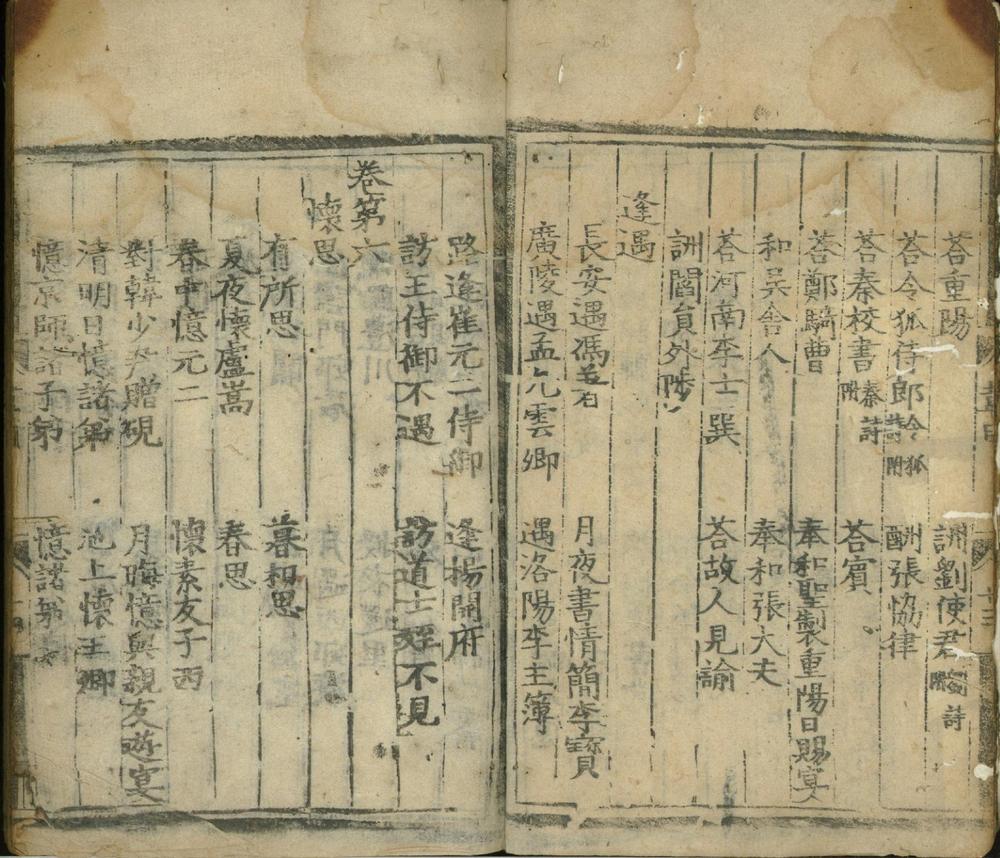 荅重陽 詶劉使君 詩
荅令狐侍郎 令狐詩附 酬張協律
荅秦校書 秦詩附 荅賓
荅鄭騎曹 奉和聖製重陽日賜宴
和吳舍人 奉和張大夫
荅河南李士巽 荅故人見諭
詶閻員外陟
逢遇
長安遇馮著 月夜書情簡李寶
廣陵遇孟九雲卿 遇洛陽李主簿
路逢崔元二侍御 逢揚開府
訪王侍御不遇 訪道士姪不見
卷第六
懷思
有所思 暮相思
夏夜懷盧嵩 春思
春中憶元二 懷素友子西
對韓少尹贈硯 月晦憶與親友遊宴
清明日憶諸弟 池上懷王卿
憶京師諸子弟 憶諸弟